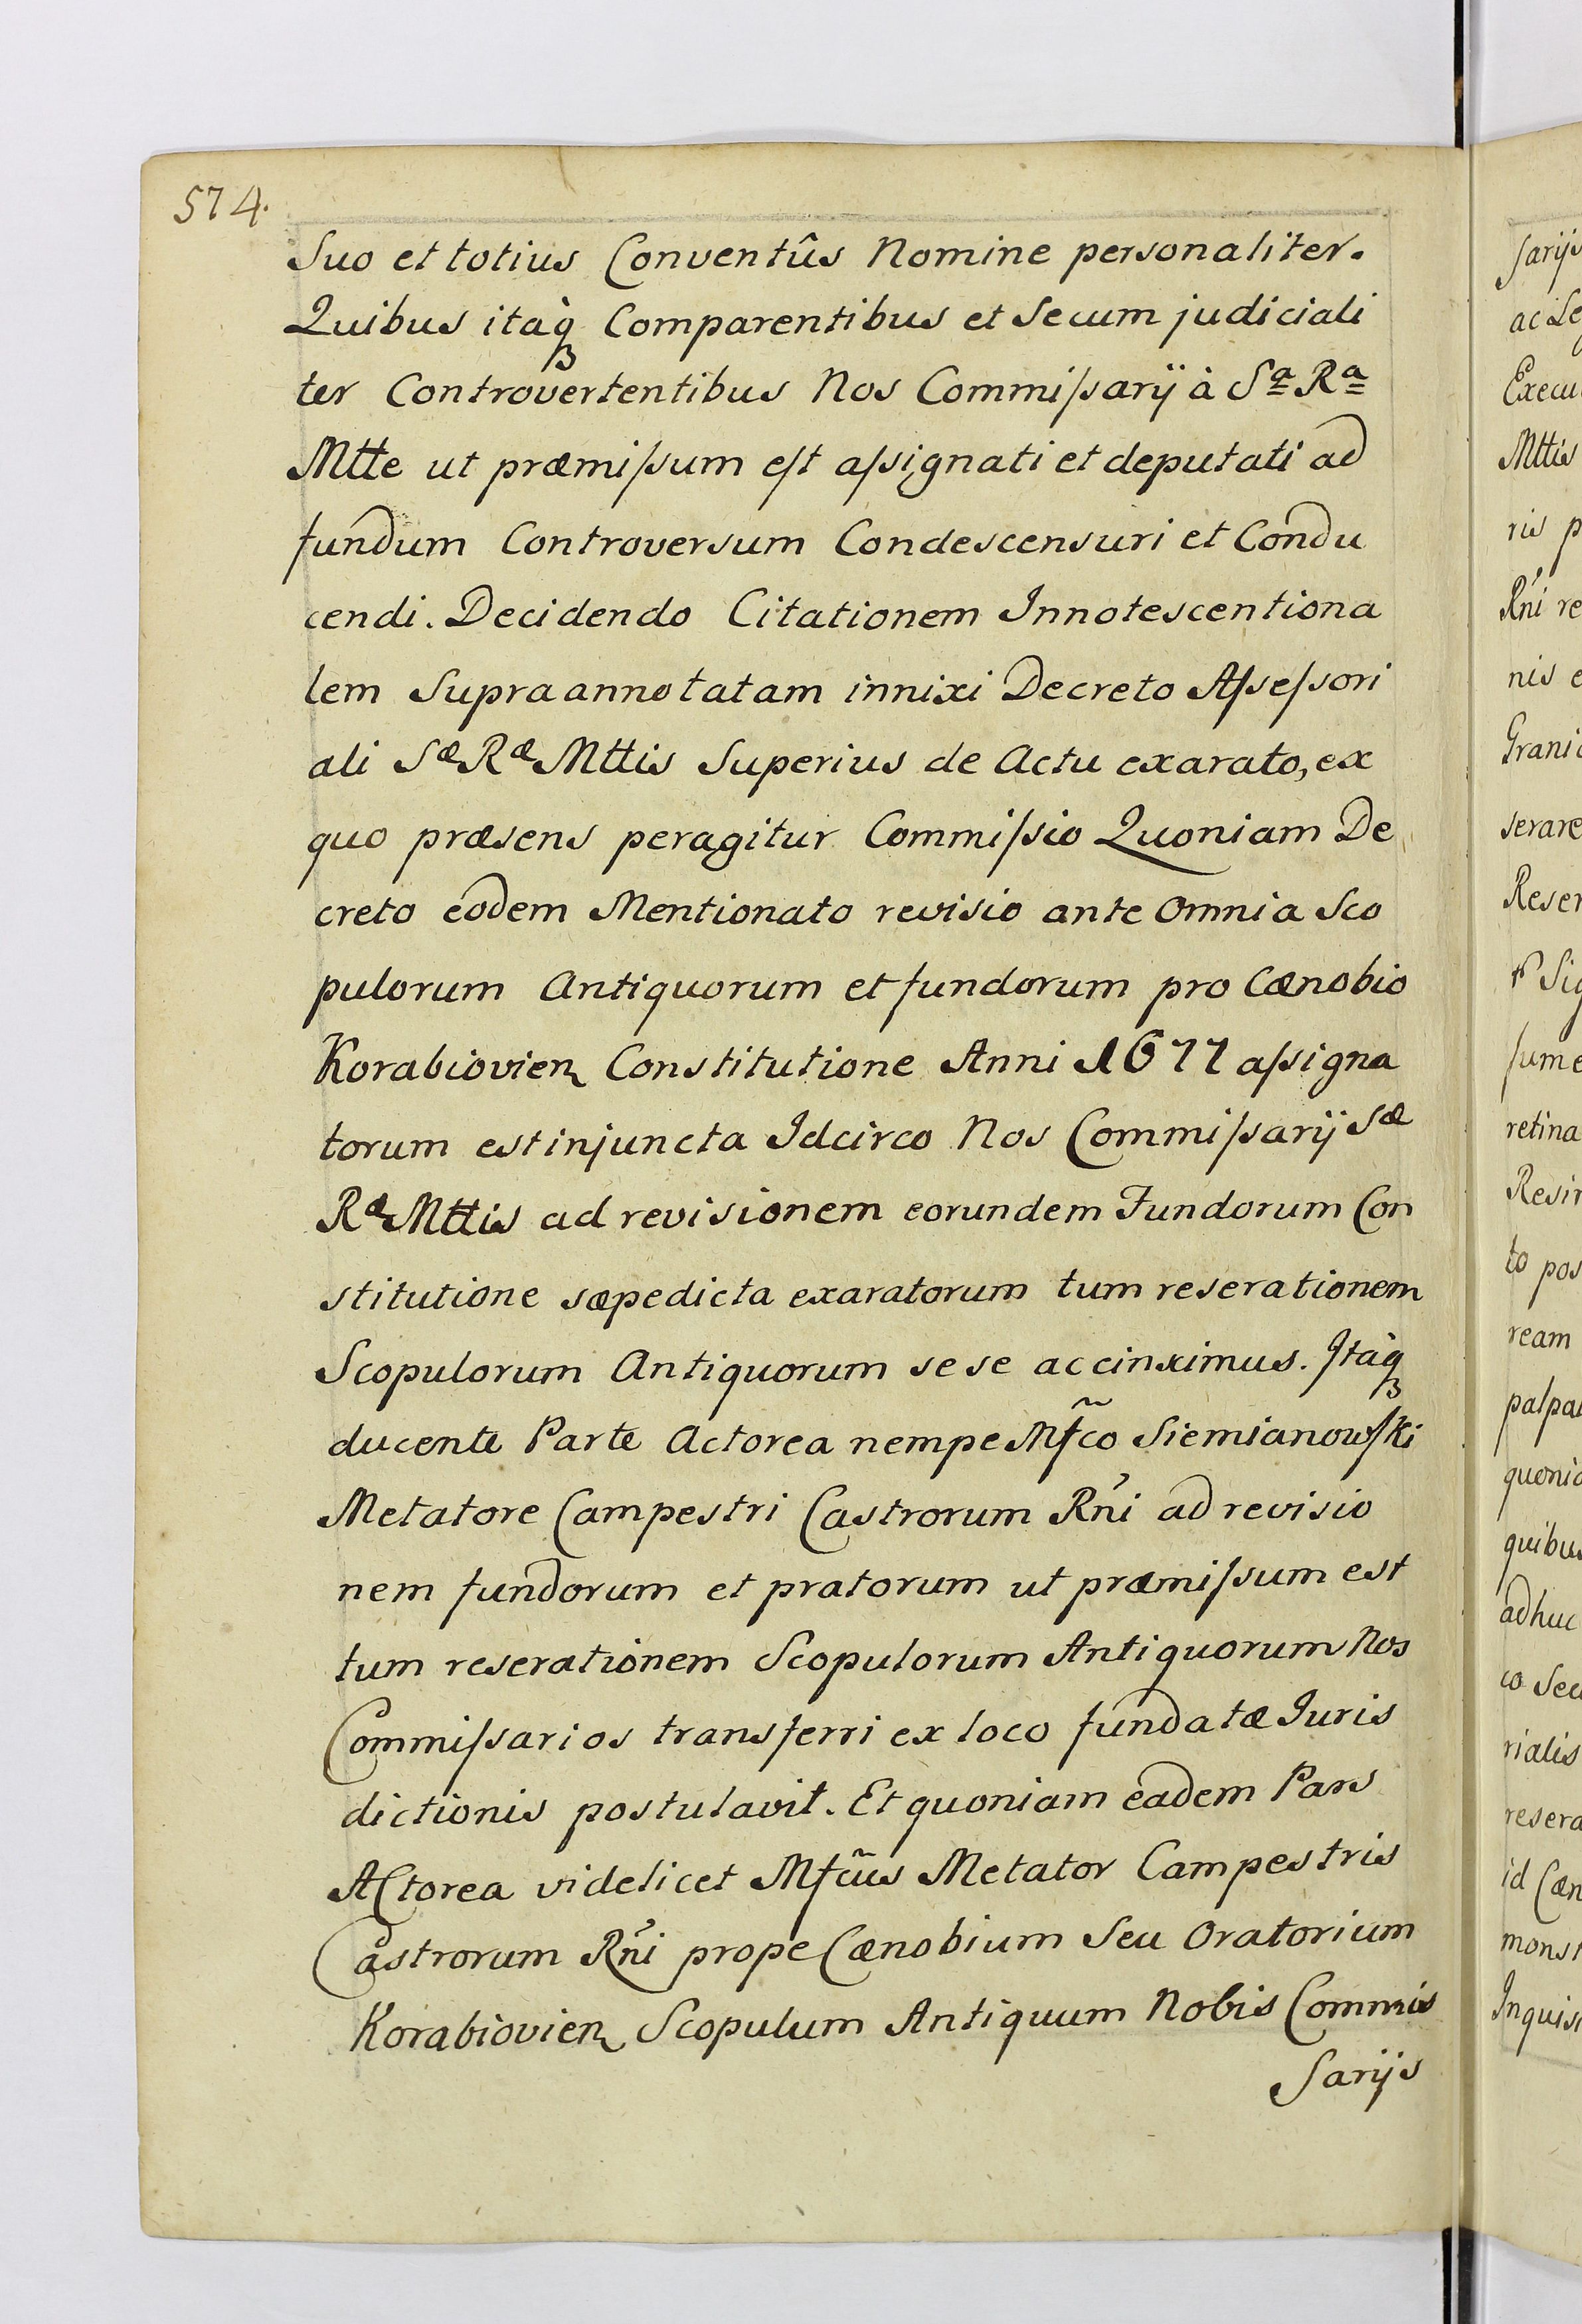 574.
Suo et totius Conventûs Nomine personaliter.
Quibus itaq̀ꝫ Comparentibus et Secum judiciali
ter Controvertentibus Nos Commiſsarij à Sª Rª
Mtte ut præmiſsum eſt aſsignati et deputati ad
fundum Controversum Condescensuri et Condu
cendi. Decidendo Citationem Innotescentiona
lem Supra annotatam innixi Decreto Aſseſsori
ali Sæ Ræ Mttis Superius de Actu exarato, ex
quo præsens peragitur Commiſsio Quoniam De
creto eodem Mentionato revisio ante Omnia Sco
pulorum Antiquorum et fundorum pro Cænobio
Korabiovien Constitutione Anni 1677 aſsigna
torum est injuncta Idcirco Nos Commiſsarij Sæ
Ræ Mttis ad revisionem eorundem Fundorum Con
stitutione sæpedicta exaratorum tum reserationem
Scopulorum Antiquorum sese accinximus. Itaq̀ꝫ
ducente Parte Actorea nempe Mf̃co Siemianowſki
Metatore Campestri Castrorum Rńi ad revisio
nem fundorum et pratorum ut præmiſsum est
tum reserationem Scopulorum Antiquorum Nos
Commiſsarios transferri ex loco fundatæ Juris
dictionis postulavit. Et quoniam eadem Pars
Actorea videlicet Mfcũs Metator Campestris
Castrorum Rńi prope Cænobium Seu Oratorium
Korabiovien Scopulum Antiquum Nobis Commis
Sarijs
sarijs
ac Le
Execu
Mttis
ris p
Rńi re
nis e
Granic
serare
Reser
Sig
sume
retina
Resir
to pos
ream
palpa
quonia
quibus
adhuc
co Sec
rialis
resera
id Cæn
monst
Inquisi